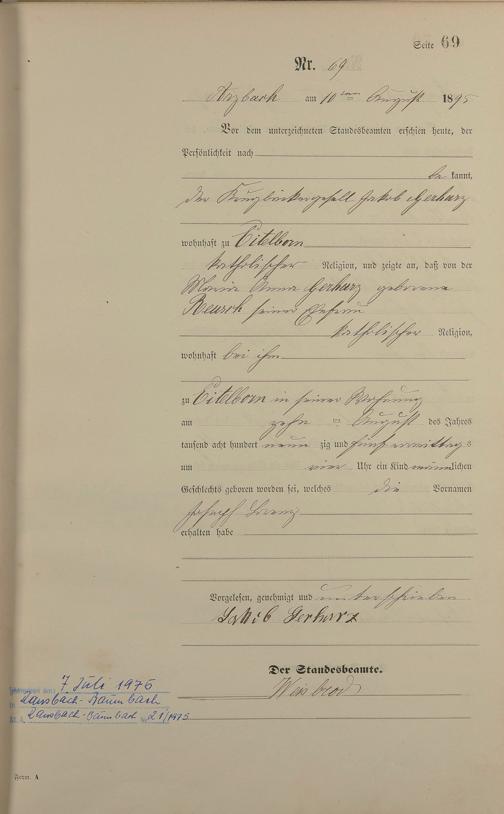 Seite 69
Nr. 69
Arzbach am 10ten August 1895
Vor dem unterzeichneten Standesbeamten erschien heute, der
Persönlichkeit nach
be kannt,
der Krugbäckergesell Jakob Gerharz
wohnhaft zu Eitelborn
katholischer Religion, und zeigte an, daß von der
Maria Anna Gerharz geborene
Reusch seiner Ehefrau
katholischer Religion,
wohnhaft bei ihm
zu Eitelborn in seiner Wohnung
am zehnten August des Jahres
tausend acht hundert neun zig und fünf vormittags
um vier Uhr ein Kind männlichen
Geschlechts geboren worden sei, welches die Vornamen
Joseph Lorenz
erhalten habe
Vorgelesen, genehmigt und unterschrieben
Jakob Gerharz
Der Standesbeamte.
Weisbrod
7 Juli 1975
Ransbach-Baumbach
Ransbach-Baumbach 21/1975
Form. A